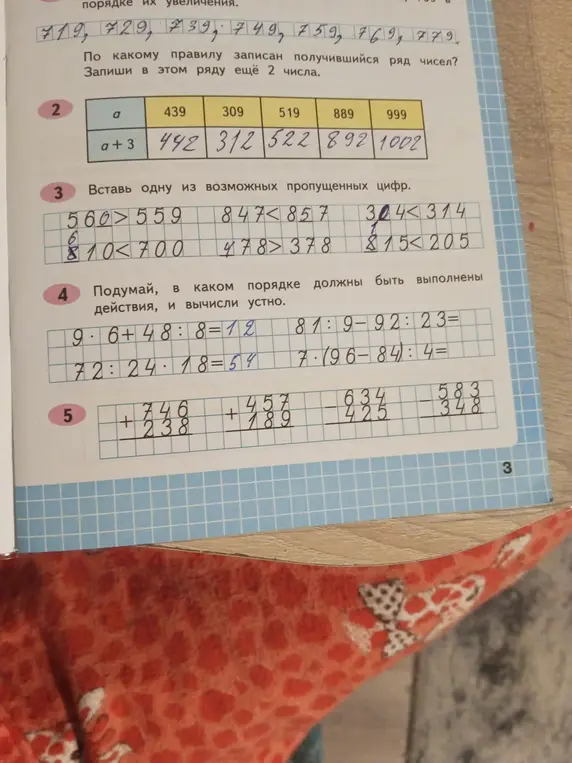 порядке их увеличения.
719, 729, 739, 749, 759, 769, 779.
По какому правилу записан получившийся ряд чисел?
Запиши в этом ряду ещё 2 числа.
2
a 439 309 519 889 999
a + 3 442 312 522 892 1002
3 Вставь одну из возможных пропущенных цифр.
560>559 847<857 304<314
6 1
810<700 478>378 815<205
4 Подумай, в каком порядке должны быть выполнены
действия, и вычисли устно.
9 · 6+48:8=12 81:9−92:23=
72:24·18=54 7·(96−84):4=
5
+746 +457 −634 −583
238 189 425 348
3